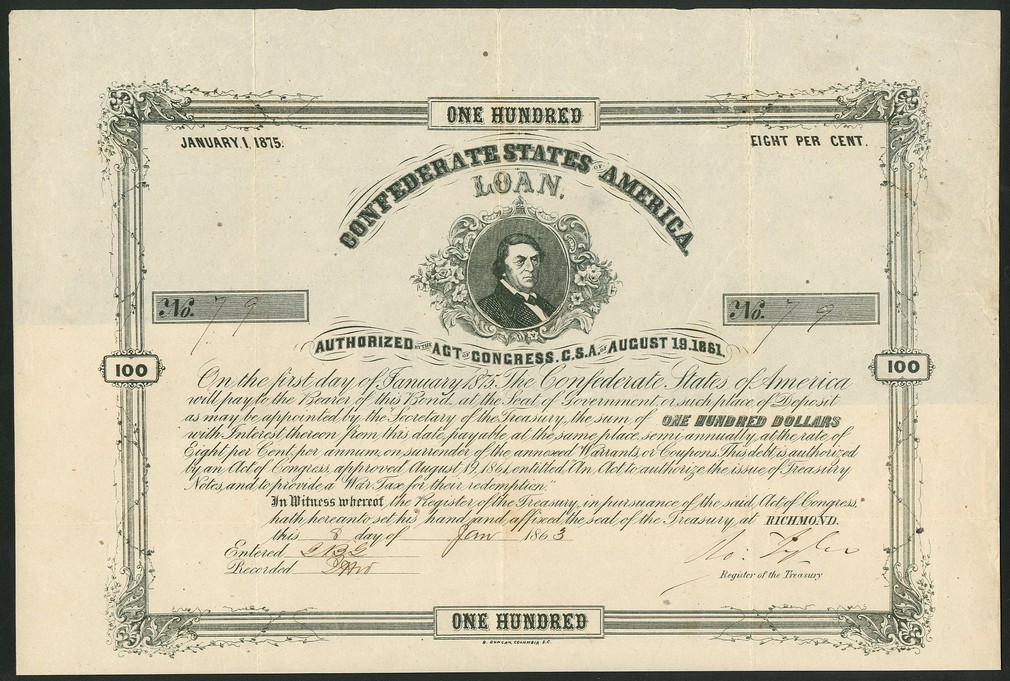 ONE HUNDRED
JANUARY 1, 1875.
EIGHT PER CENT.
CONFEDERATE STATES OF AMERICA
LOAN,
No. 79
No. 79
AUTHORIZED BY THE ACT OF CONGRESS, C.S.A. OF AUGUST 19.1861.
100
100
On the first day of January 1875, The Confederate States of America
will pay to the Bearer of this Bond, at the Seat of Government, or such place of Deposit
as may be appointed by the Secretary of the Treasury, the sum of ONE HUNDRED DOLLARS
with Interest thereon from this date, payable at the same place semi-annually, at the rate of
Eight per Cent, per annum, on surrender of the annexed Warrants, or Coupons. This debt is authorized
by an Act of Congress, approved August 19, 1861, entitled "An Act to authorize the issue of Treasury
Notes, and to provide a War Tax for their redemption."
In Witness whereof, the Register of the Treasury, in pursuance of the said Act of Congress,
hath hereunto set his hand and affixed the seal of the Treasury, at RICHMOND.
this 8 day of Jan 1863
Entered
Recorded
Ro: Tyler
Register of the Treasury
ONE HUNDRED
B. DUNCAN, COLUMBIA, S.C.